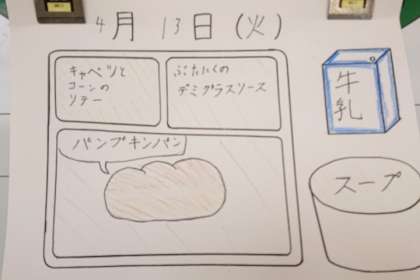 4月 13日(火)
キャベツと
コーンの
ソテー
ぶたにくの
デミグラスソース
パンプキンパン
牛乳
スープ